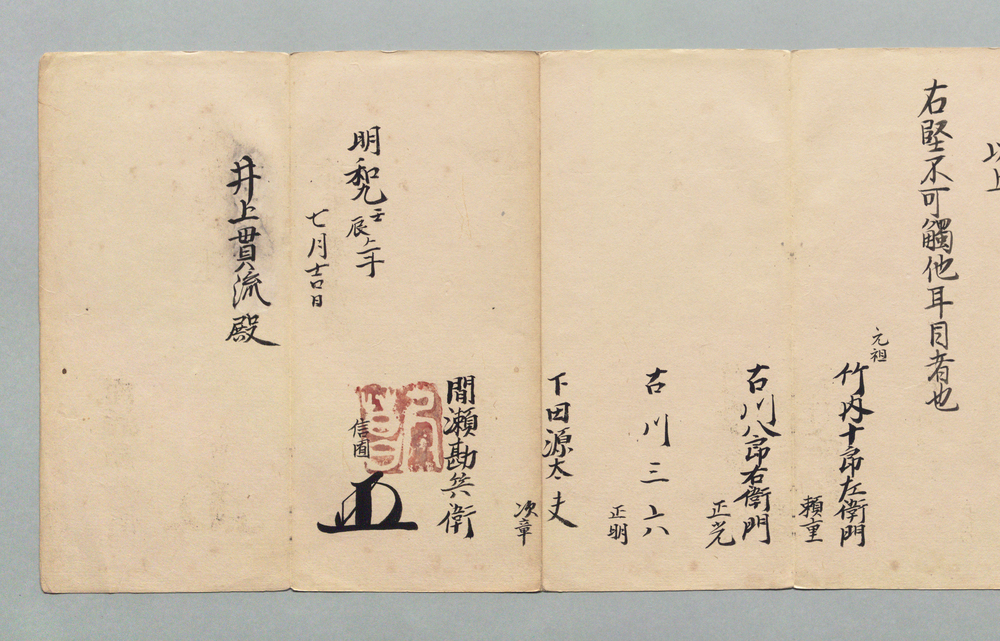 以上
右堅不可觸他耳目者也
元祖
竹内十郎左衛門
頼重
古川八郎右衛門
正光
古川三六
正明
下田源太夫
次章
間瀬勘兵衛
信
明和九壬辰年
七月吉日
井上貫流殿